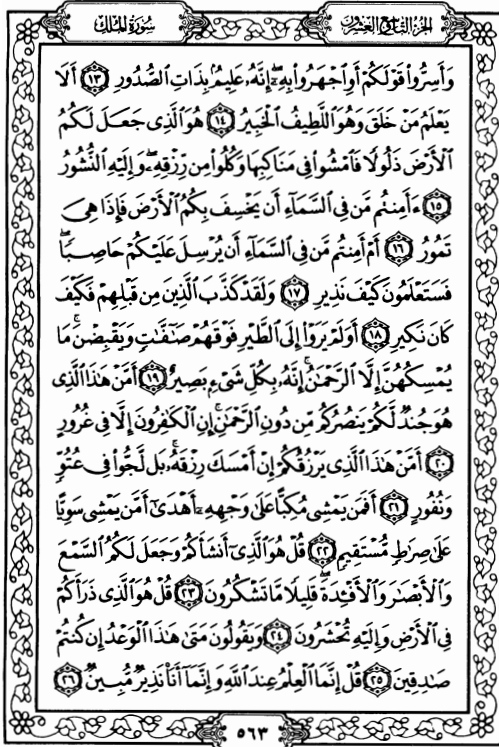 سُورَةُ المُلْكِ
الجُزْءُ التَّاسِعُ وَالعِشْرُونَ
وَأَسِرُّوا۟ قَوْلَكُمْ أَوِ ٱجْهَرُوا۟ بِهِۦٓ إِنَّهُۥ عَلِيمٌۢ بِذَاتِ ٱلصُّدُورِ ١٣ أَلَا
يَعْلَمُ مَنْ خَلَقَ وَهُوَ ٱللَّطِيفُ ٱلْخَبِيرُ ١٤ هُوَ ٱلَّذِى جَعَلَ لَكُمُ
ٱلْأَرْضَ ذَلُولًا فَٱمْشُوا۟ فِى مَنَاكِبِهَا وَكُلُوا۟ مِن رِّزْقِهِۦ وَإِلَيْهِ ٱلنُّشُورُ
١٥ ءَأَمِنتُم مَّن فِى ٱلسَّمَآءِ أَن يَخْسِفَ بِكُمُ ٱلْأَرْضَ فَإِذَا هِىَ
تَمُورُ ١٦ أَمْ أَمِنتُم مَّن فِى ٱلسَّمَآءِ أَن يُرْسِلَ عَلَيْكُمْ حَاصِبًا
فَسَتَعْلَمُونَ كَيْفَ نَذِيرِ ١٧ وَلَقَدْ كَذَّبَ ٱلَّذِينَ مِن قَبْلِهِمْ فَكَيْفَ
كَانَ نَكِيرِ ١٨ أَوَلَمْ يَرَوْا۟ إِلَى ٱلطَّيْرِ فَوْقَهُمْ صَٰٓفَّٰتٍ وَيَقْبِضْنَ مَا
يُمْسِكُهُنَّ إِلَّا ٱلرَّحْمَٰنُ إِنَّهُۥ بِكُلِّ شَىْءٍۭ بَصِيرٌ ١٩ أَمَّنْ هَٰذَا ٱلَّذِى
هُوَ جُندٌ لَّكُمْ يَنصُرُكُم مِّن دُونِ ٱلرَّحْمَٰنِ إِنِ ٱلْكَٰفِرُونَ إِلَّا فِى غُرُورٍ
٢٠ أَمَّنْ هَٰذَا ٱلَّذِى يَرْزُقُكُمْ إِنْ أَمْسَكَ رِزْقَهُۥ بَل لَّجُّوا۟ فِى عُتُوٍّ
وَنُفُورٍ ٢١ أَفَمَن يَمْشِى مُكِبًّا عَلَىٰ وَجْهِهِۦٓ أَهْدَىٰٓ أَمَّن يَمْشِى سَوِيًّا
عَلَىٰ صِرَٰطٍ مُّسْتَقِيمٍ ٢٢ قُلْ هُوَ ٱلَّذِىٓ أَنشَأَكُمْ وَجَعَلَ لَكُمُ ٱلسَّمْعَ
وَٱلْأَبْصَٰرَ وَٱلْأَفْـِٔدَةَ قَلِيلًا مَّا تَشْكُرُونَ ٢٣ قُلْ هُوَ ٱلَّذِى ذَرَأَكُمْ
فِى ٱلْأَرْضِ وَإِلَيْهِ تُحْشَرُونَ ٢٤ وَيَقُولُونَ مَتَىٰ هَٰذَا ٱلْوَعْدُ إِن كُنتُمْ
صَٰدِقِينَ ٢٥ قُلْ إِنَّمَا ٱلْعِلْمُ عِندَ ٱللَّهِ وَإِنَّمَآ أَنَا۠ نَذِيرٌ مُّبِينٌ ٢٦
٥٦٣